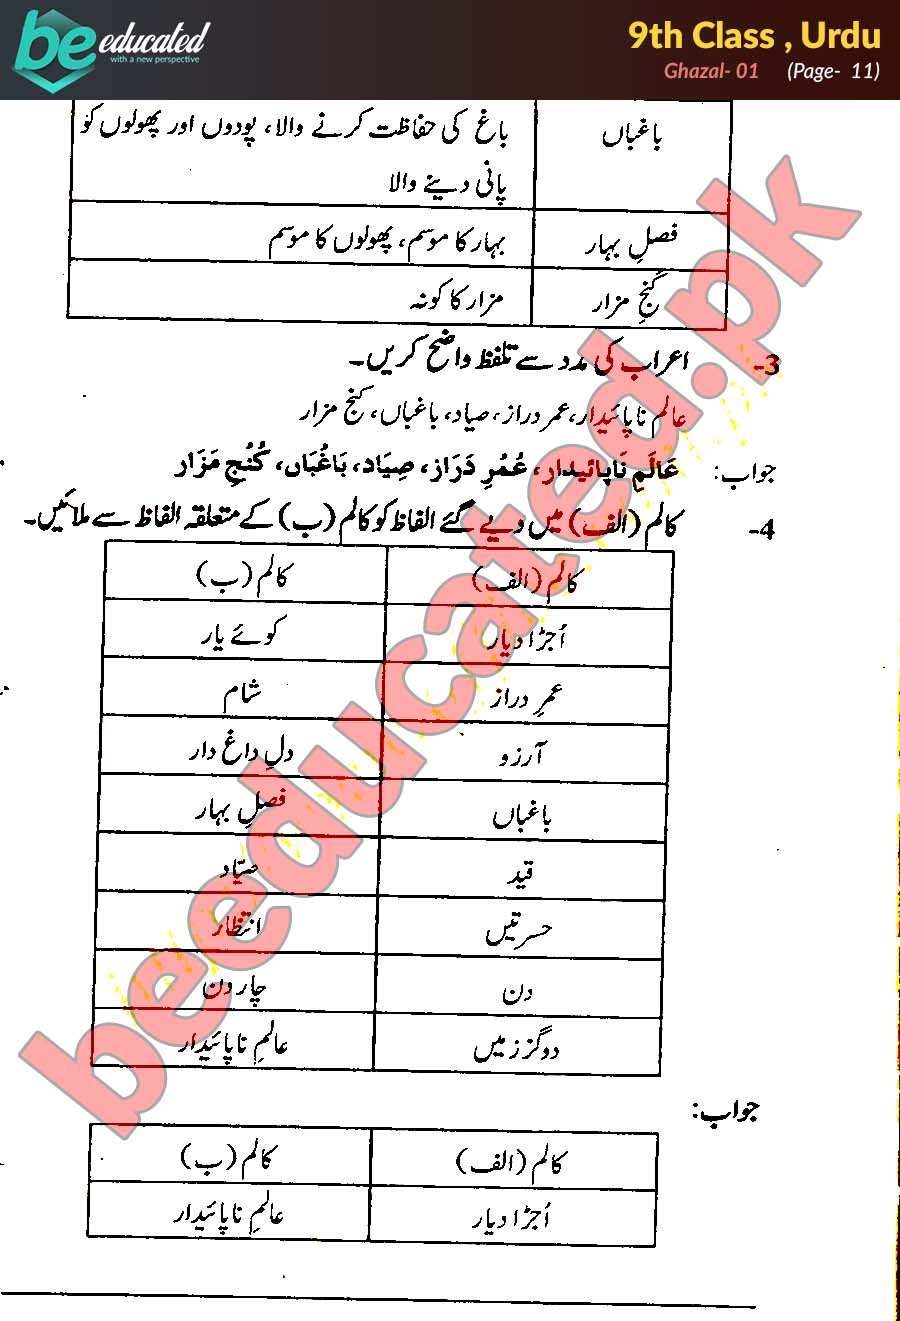 be educated
with a new perspective
9th Class , Urdu
Ghazal- 01 (Page- 11)
باغباں	باغ کی حفاظت کرنے والا، پودوں اور پھولوں کو
پانی دینے والا
فصلِ بہار	بہار کا موسم، پھولوں کا موسم
کُنجِ مزار	مزار کا کونہ
3- اعراب کی مدد سے تلفظ واضح کریں۔
عالم ناپائیدار، عمر دراز، صیاد، باغباں، کنج مزار
جواب: عَالَمِ نَاپائیدار، عُمُرِ دَرَاز، صِیَاد، بَاغُبَاں، کُنُجِ مَزَار
4- کالم (الف) میں دیے گئے الفاظ کو کالم (ب) کے متعلقہ الفاظ سے ملائیں۔
کالم (الف)	کالم (ب)
اُجڑا دیار	کوئے یار
عمرِ دراز	شام
آرزو	دلِ داغ دار
باغباں	فصلِ بہار
قید	صیّاد
حسرتیں	انتظار
دن	چار دن
دو گز زمیں	عالمِ ناپائیدار
جواب:
کالم (الف)	کالم (ب)
اُجڑا دیار	عالمِ ناپائیدار
beeducated.pk